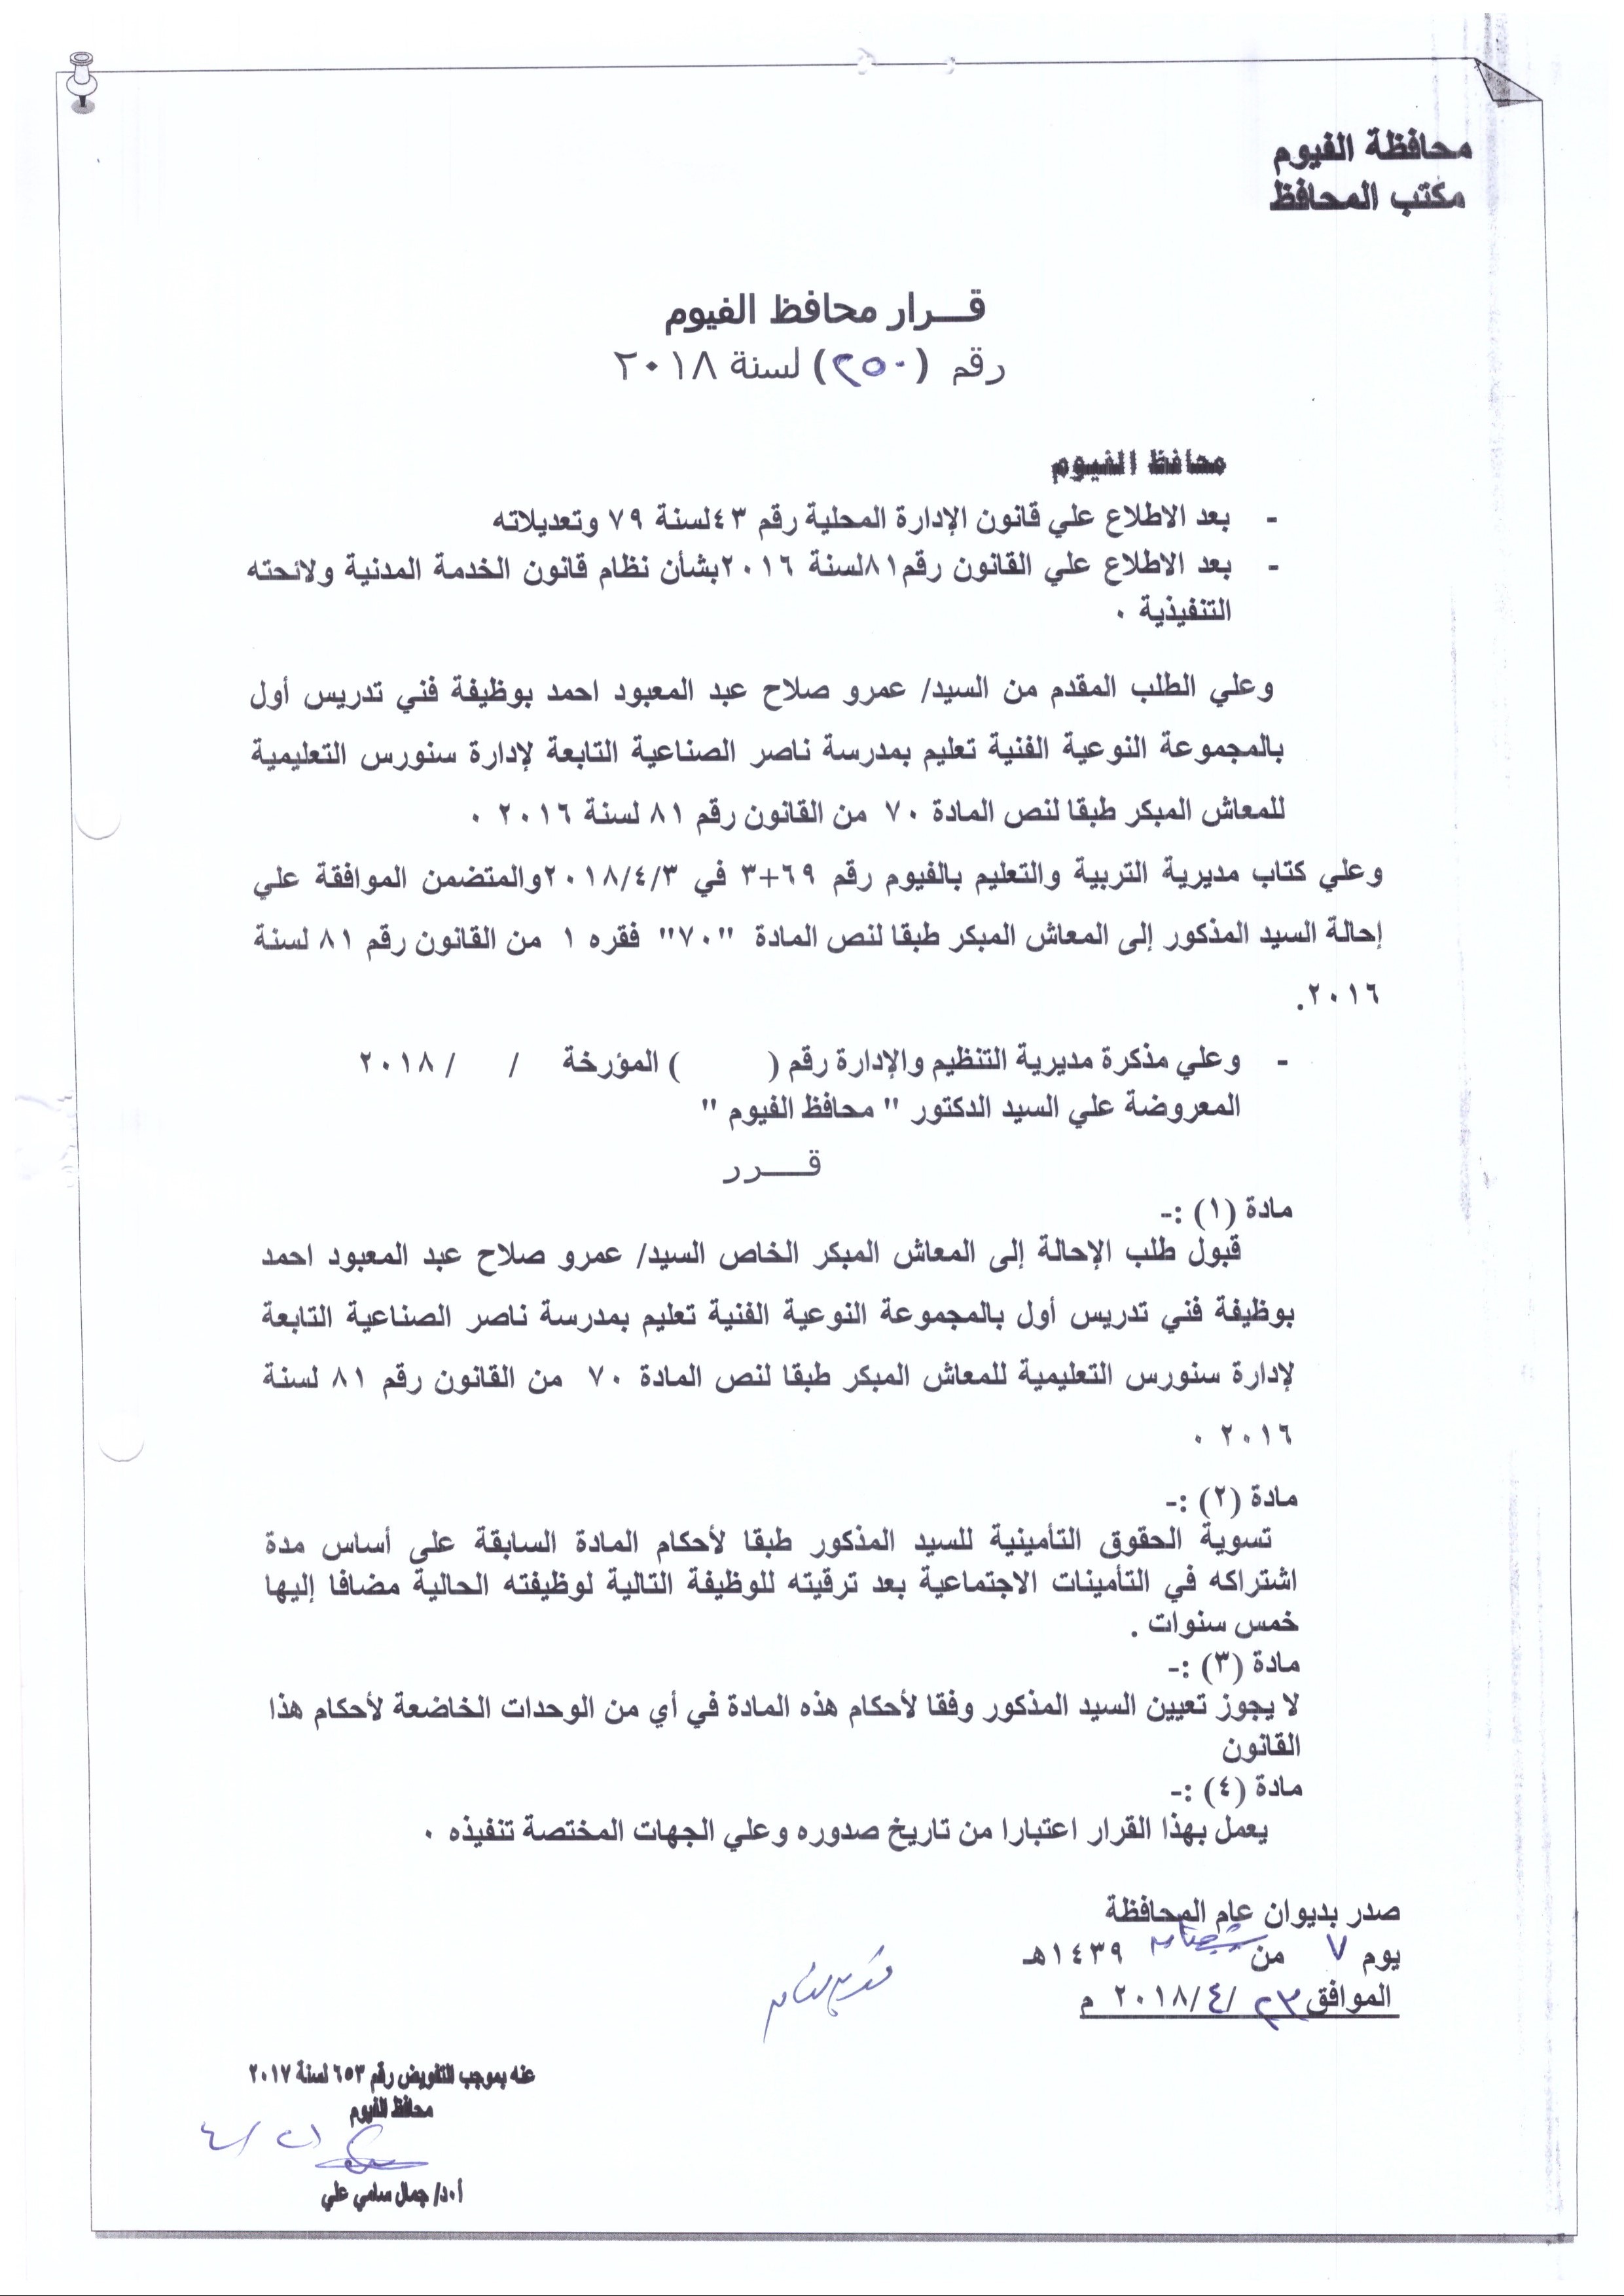 محافظة الفيوم
مكتب المحافظ
قـــرار محافظ الفيوم
رقم (٢٥٠) لسنة ٢٠١٨
محافظ الفيوم
- بعد الاطلاع علي قانون الإدارة المحلية رقم ٤٣لسنة ٧٩ وتعديلاته
- بعد الاطلاع علي القانون رقم٨١لسنة ٢٠١٦بشأن نظام قانون الخدمة المدنية ولائحته
التنفيذية ٠
وعلي الطلب المقدم من السيد/ عمرو صلاح عبد المعبود احمد بوظيفة فني تدريس أول
بالمجموعة النوعية الفنية تعليم بمدرسة ناصر الصناعية التابعة لإدارة سنورس التعليمية
للمعاش المبكر طبقا لنص المادة ٧٠ من القانون رقم ٨١ لسنة ٢٠١٦ ٠
وعلي كتاب مديرية التربية والتعليم بالفيوم رقم ٦٩+٣ في ٢٠١٨/٤/٣والمتضمن الموافقة علي
إحالة السيد المذكور إلى المعاش المبكر طبقا لنص المادة "٧٠" فقره ١ من القانون رقم ٨١ لسنة
٢٠١٦.
- وعلي مذكرة مديرية التنظيم والإدارة رقم ( ) المؤرخة / / ٢٠١٨
المعروضة علي السيد الدكتور " محافظ الفيوم "
قــــرر
مادة (١) :-
قبول طلب الإحالة إلى المعاش المبكر الخاص السيد/ عمرو صلاح عبد المعبود احمد
بوظيفة فني تدريس أول بالمجموعة النوعية الفنية تعليم بمدرسة ناصر الصناعية التابعة
لإدارة سنورس التعليمية للمعاش المبكر طبقا لنص المادة ٧٠ من القانون رقم ٨١ لسنة
٢٠١٦ ٠
مادة (٢) :-
تسوية الحقوق التأمينية للسيد المذكور طبقا لأحكام المادة السابقة على أساس مدة
اشتراكه في التأمينات الاجتماعية بعد ترقيته للوظيفة التالية لوظيفته الحالية مضافا إليها
خمس سنوات .
مادة (٣) :-
لا يجوز تعيين السيد المذكور وفقا لأحكام هذه المادة في أي من الوحدات الخاضعة لأحكام هذا
القانون
مادة (٤) :-
يعمل بهذا القرار اعتبارا من تاريخ صدوره وعلي الجهات المختصة تنفيذه ٠
صدر بديوان عام المحافظة
يوم ٧ من شعبان ١٤٣٩هـ
الموافق٢٣ /٤/ ٢٠١٨ م
عنه بموجب التفويض رقم ٦٥٣ لسنة ٢٠١٧
محافظ الفيوم
أ٠د/ جمال سامي علي